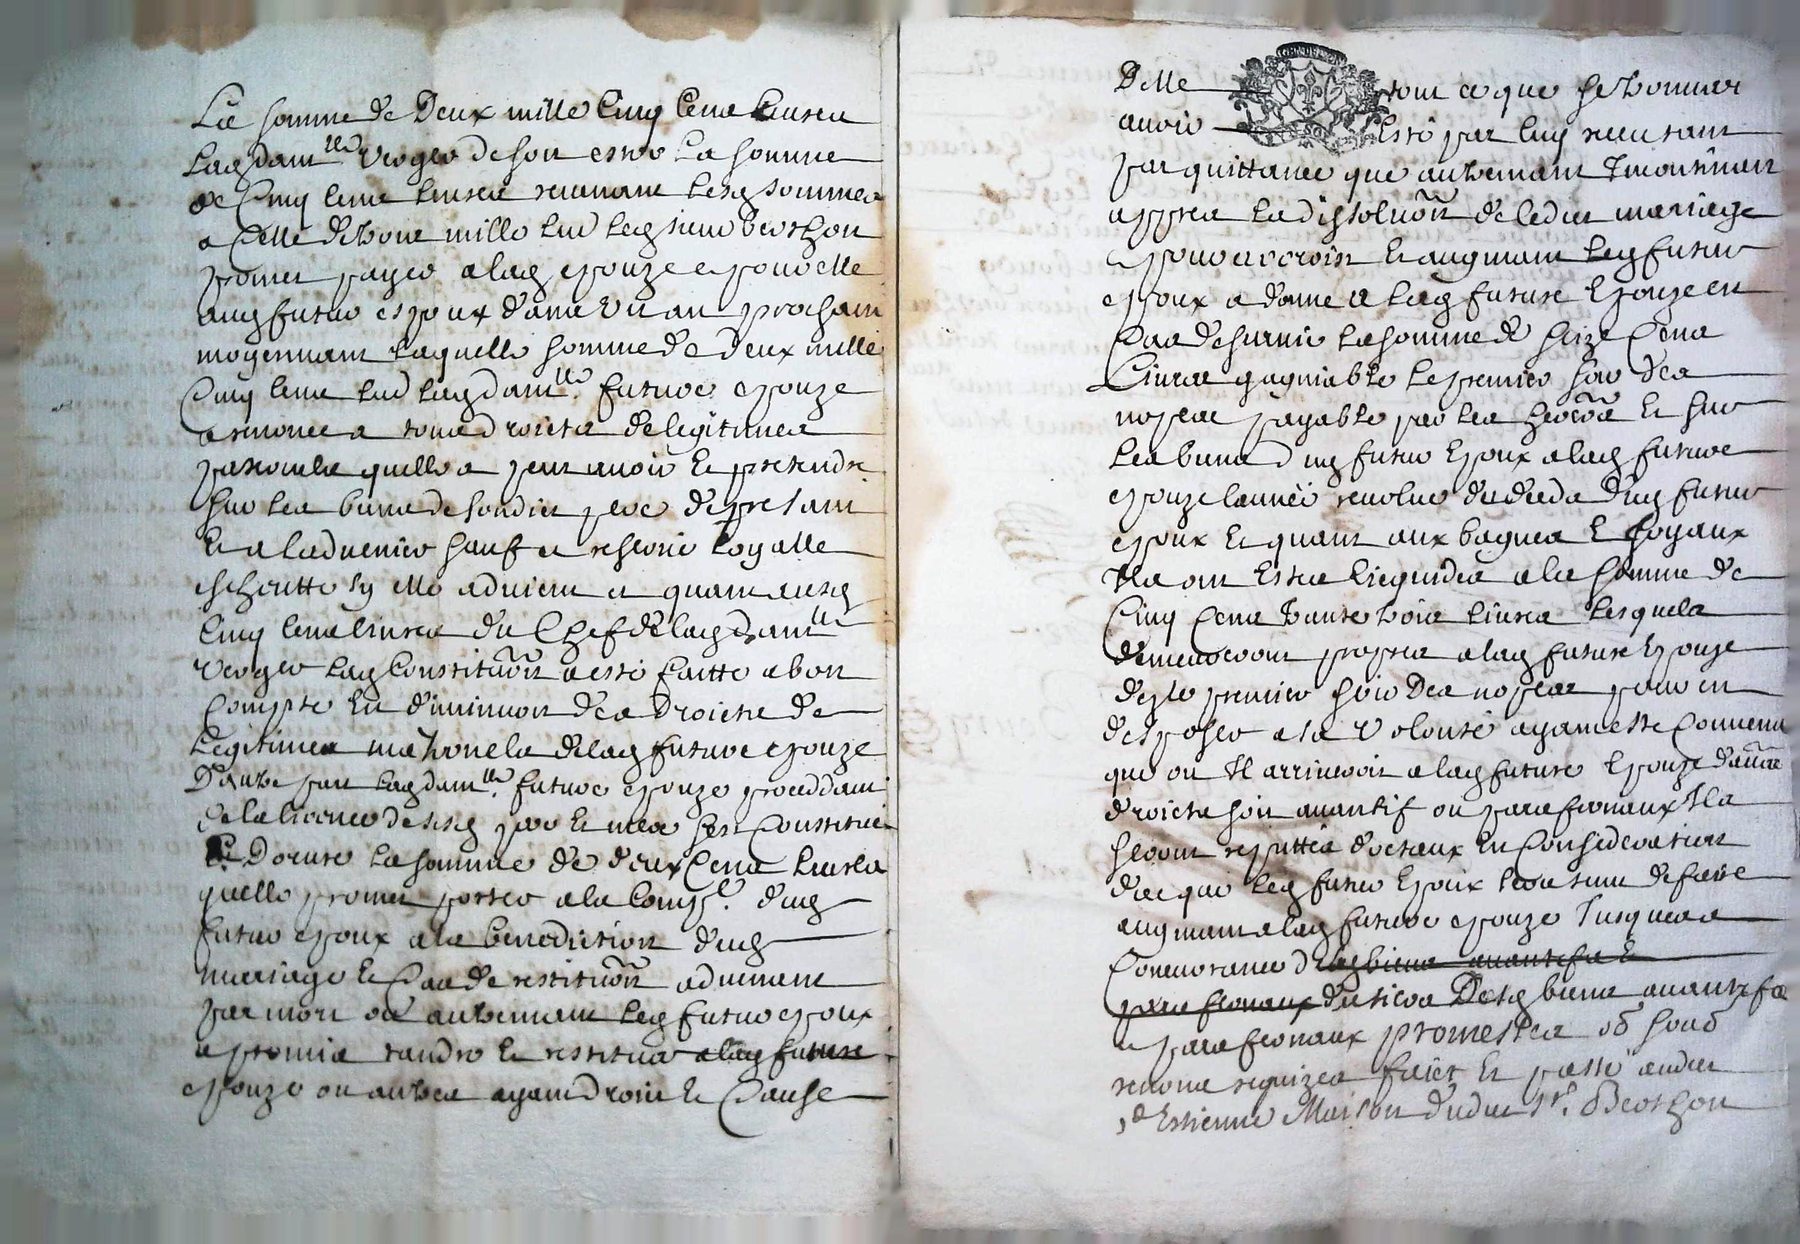 La somme de Deux mille Cinq Cens livres
Lad damlle Verger de son estoc La somme
de Cinq Cens livres revenant Lesd sommes
a Celle de trois mille liv Led sieur Berthon
promet payer a lad epouze epour elle
aud futur espoux dans Un an prochain
moyennant laquelle somme de deux mille
Cinq Cens liv lad damlle future epouze
a renonce a tous droicts de legitimes
paternels quelle a peut avoir Et pretendre
sur Les biens de sondit pere de present
Et a ladvenir sauf a reservé loyalle
escheutte sy elle advient et quant ausd
Cinq Cens livres du Chef de lad damlle
Verger lad Constituōn a esté faitte a bon
Compte En diminuōn des droicts de
Legitimes maternels de lad future epouze
D'autre part lad damlle future epouze proceddant
de la licence de sesd pere Et mere sest Constitué
En Dotute la somme de deux Cens livres la
quelle promet porter a la Comp.e dud
futur epoux a la benediction dud
mariage Et Cas de restituōn advenant
par mort ou autrement led futur epoux
a promis randre Et restituer a lad future
epouze ou autres ayant Droict Et Cause
Delle tout ce que se trouvera
avoir Esté par luy receu tant
par quittance que autrement Incontinant
appres la dissoluōn de ledit mariage
epour accroist Et augmant led futur
epoux a donne a lad future Epouze en
Cas de survie la somme de seize Cens
Livres gagniable le premier soir des
nopces payable par les heriers Et sur
les biens dud futur Epoux a lad future
epouze lannée revolue du deceds dud futur
epoux Et quant aux bagues Et Joyaux
Ils ont Estes licquides a la somme de
Cinq Cens trante trois livres lesquels
demeureront propres a lad future Epouze
des le premier soir Des nopces pour en
disposer a sa Volonté ayant esté Convenu
que ou Il arriveroit a lad future Epouze dautres
droicts soit avantif ou paraffernaux Ils
seront reputtes doctaux En Consideration
de ce que led futur Epoux leou sera de faire
augmant a lad future epouze Jusques a
Concurance d lesd biens avantifs Et
paraffernaux du tiers Desd biens avantifs
e paraffernaux promesses ob soub
renons requizes faict Et passé audit
St Estienne Maison dudit Sr. Berthon